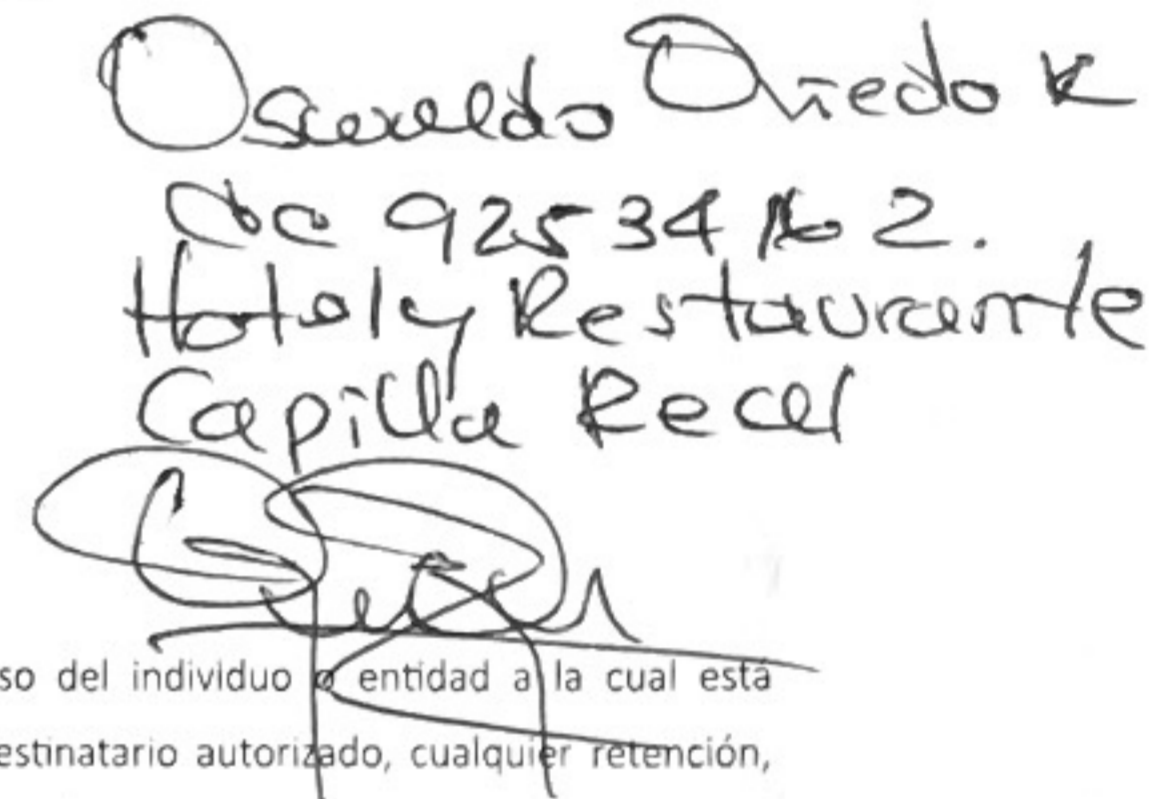 Osweldo Oviedo K
cc 92534162.
Hotel y Restaurante
Capilla Real
so del individuo o entidad a la cual está
estinatario autorizado, cualquier retención,